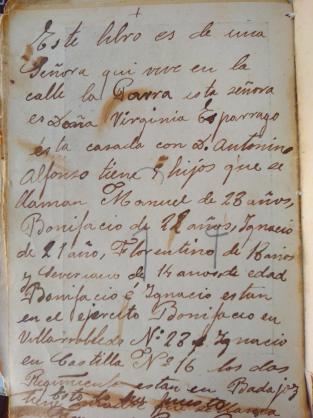 Este libro es de una
Señora qui vive en la
calle la Parra esta señora
es Doña Virginia Esparrago
ésta casada con D. Antonino
Alfonso tiene 5 hijos que se
llaman Manuel de 23 años,
Bonifacio de 22 años, Ignacio
de 21 año, Florentino de años
y Severiano de 14 anos de edad
Bonifacio é Ignacio estan
en el ejercito Bonifacio en
Villarrobledo Nº 23 é Ignacio
en Castilla Nº 16 los dos
Regimientos estan en Badajoz
Esto lo puesto